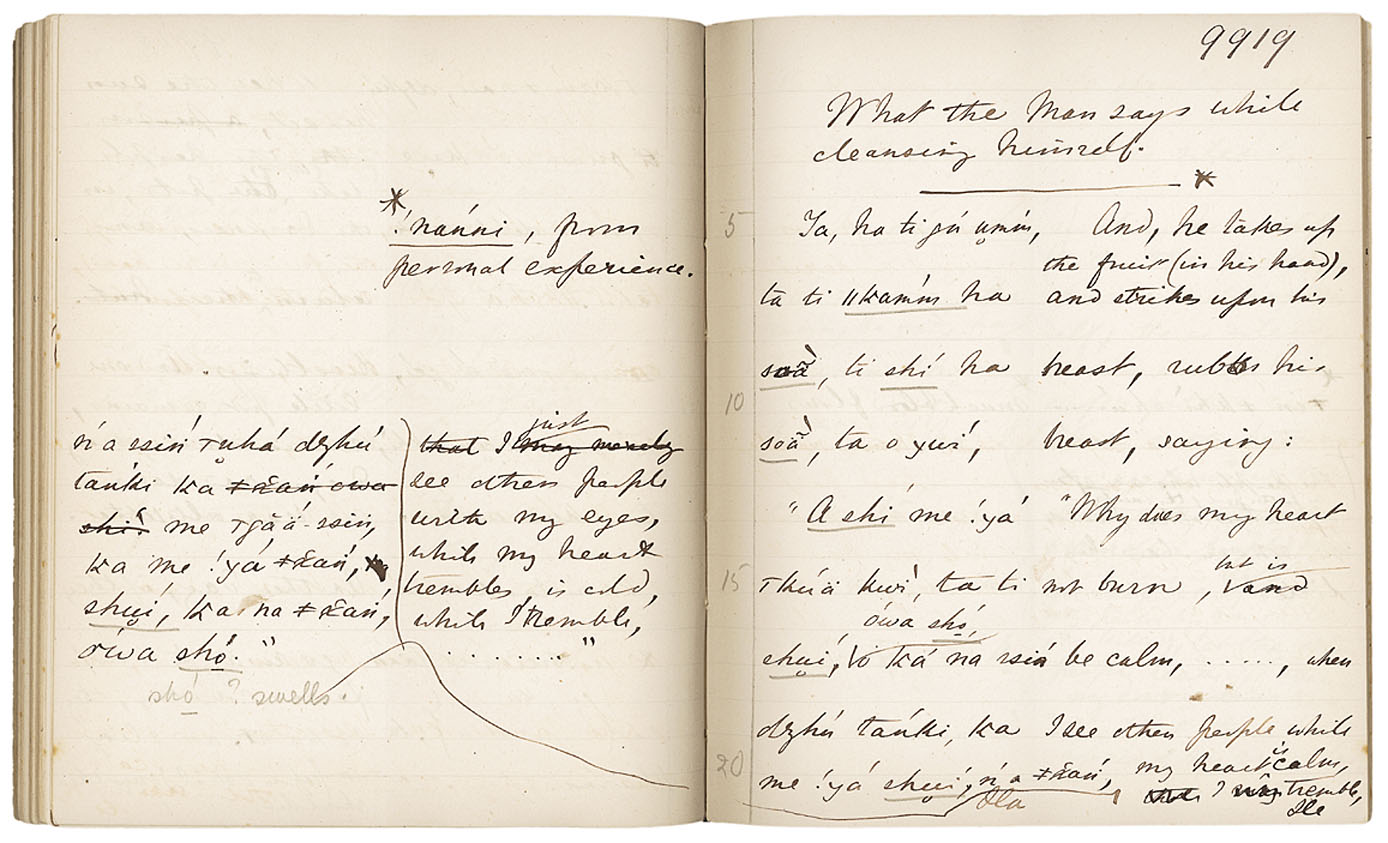 *
!nańni, from
personal experience.
ń a ssiń τuhá dzhú
táńki ka
shi! me
ka me !yá ǂxań,
shuí, ka na ǂxań,
ówa shó."
shó ? swells.
just
that I may merely
see other people
with my eyes,
while my heart
trembles, is cold,
while I tremble,
. . . . . . . . "
9919
What the Man says while
cleansing himself.
*
5 Ta, ha ti gú umḿ, And, he takes up
the fruit (in his hand),
ta ti ǁkamḿ ha and strikes upon his
soã, ti shí ha breast, rubs his
10
soã, ta o yuí, breast, saying:
"A shí me !yá "Why does my heart
but is
15 kuí, ta ti not burn, and
ówa shó,
shuí, ká na ssiń be calm, . . . . . , when
dzhú táńki, ka I see other people while
20 me !yá shuí, ń a ǂxań, my heart is calm,
I tremble,